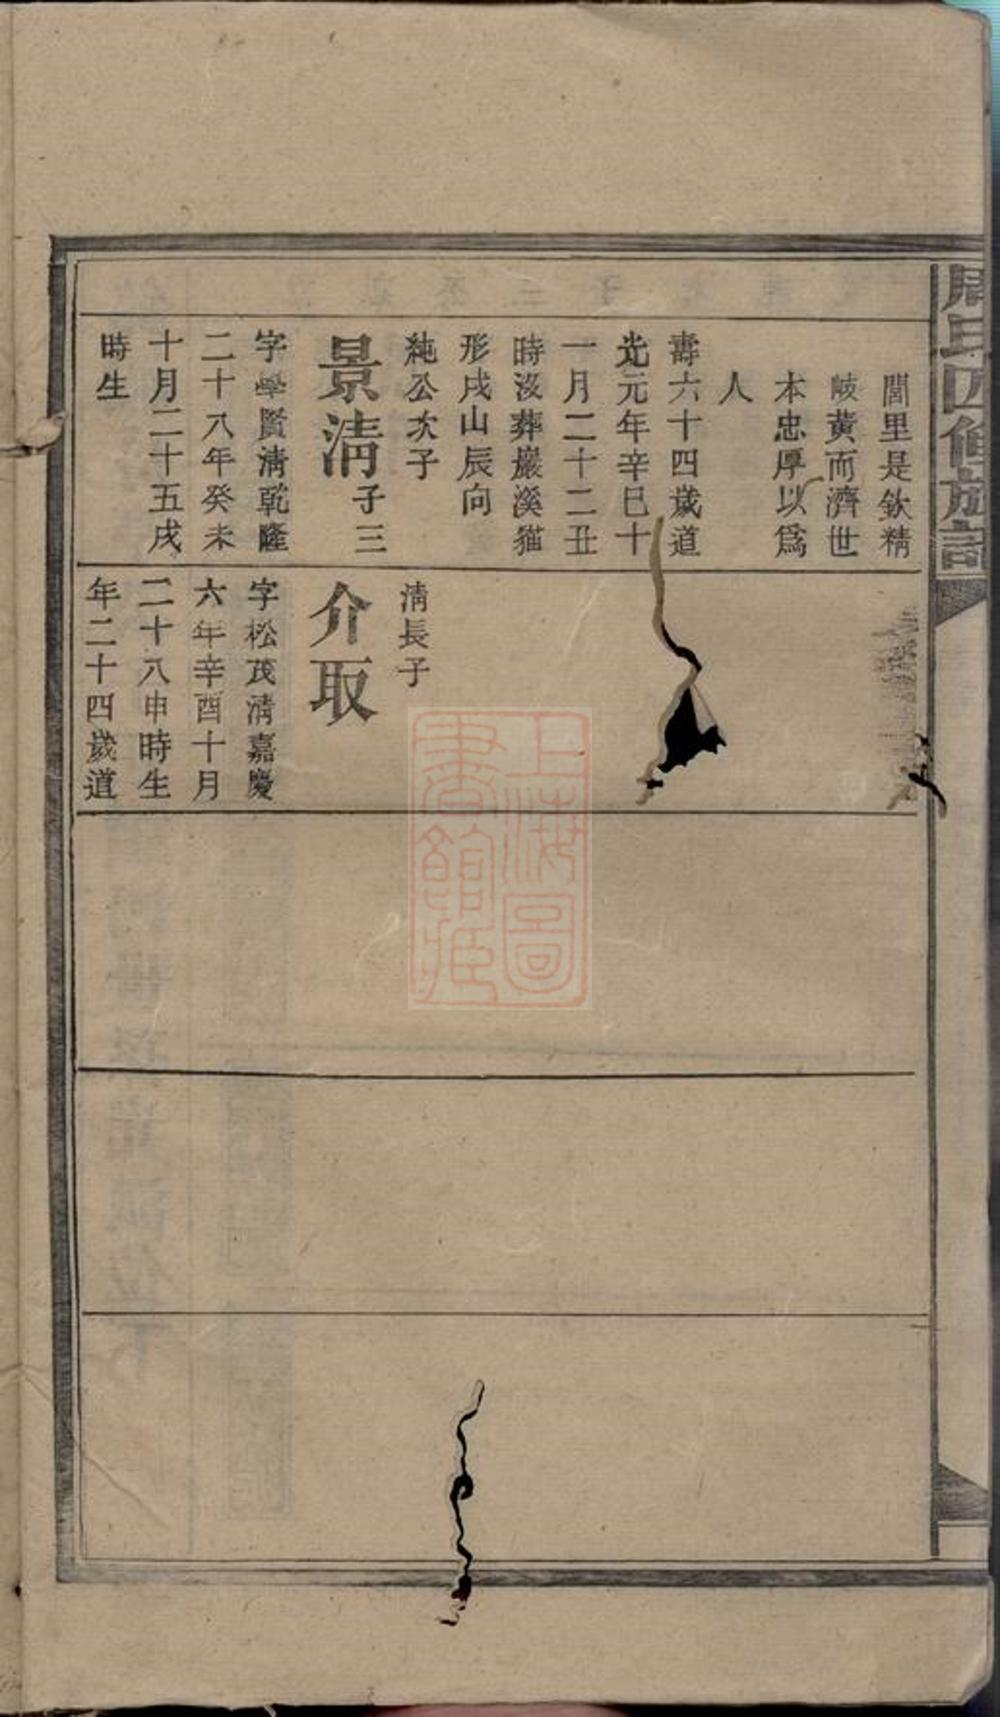 周氏四修族譜
閭里是欽精
岐黃而濟世
本忠厚以爲
人
壽六十四歲道
光元年辛巳十
一月二十二丑
時沒葬巖溪猫
形戌山辰向
純公次子
景淸子三
字學賢淸乾隆
二十八年癸未
十月二十五戌
時生
淸長子
介取
字松茂淸嘉慶
六年辛酉十月
二十八申時生
年二十四歲道
上海圖
書館藏